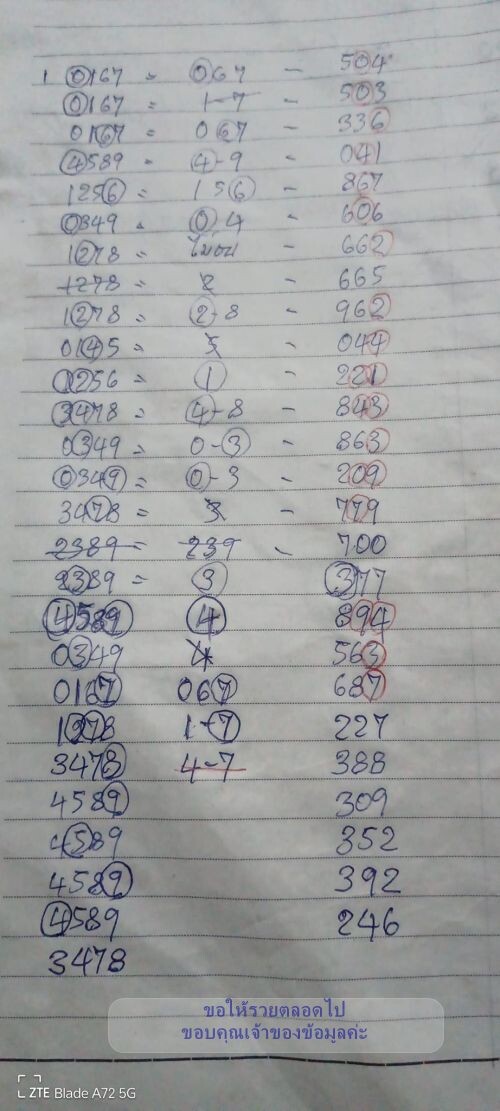 1 0167 = 067 - 504
0167 = 1-7 - 503
0167 = 067 - 336
4589 = 4-9 - 041
1256 = 156 - 867
0349 = 0,4 - 606
1278 = - 662
1278 = 2 - 665
1278 = 2-8 - 962
0145 = 5 - 044
1256 = 1 - 221
3478 = 4-8 - 843
0349 = 0-3 - 863
0349 = 0-3 - 209
3478 = 3 - 779
2389 = 239 - 700
2389 = 3 377
4589 4 894
0349 4 563
0167 067 687
1278 1-7 227
3478 4-7 388
4589 309
4589 352
4589 392
4589 246
3478
ขอให้รวยตลอดไป
ขอบคุณเจ้าของข้อมูลค่ะ
ZTE Blade A72 5G